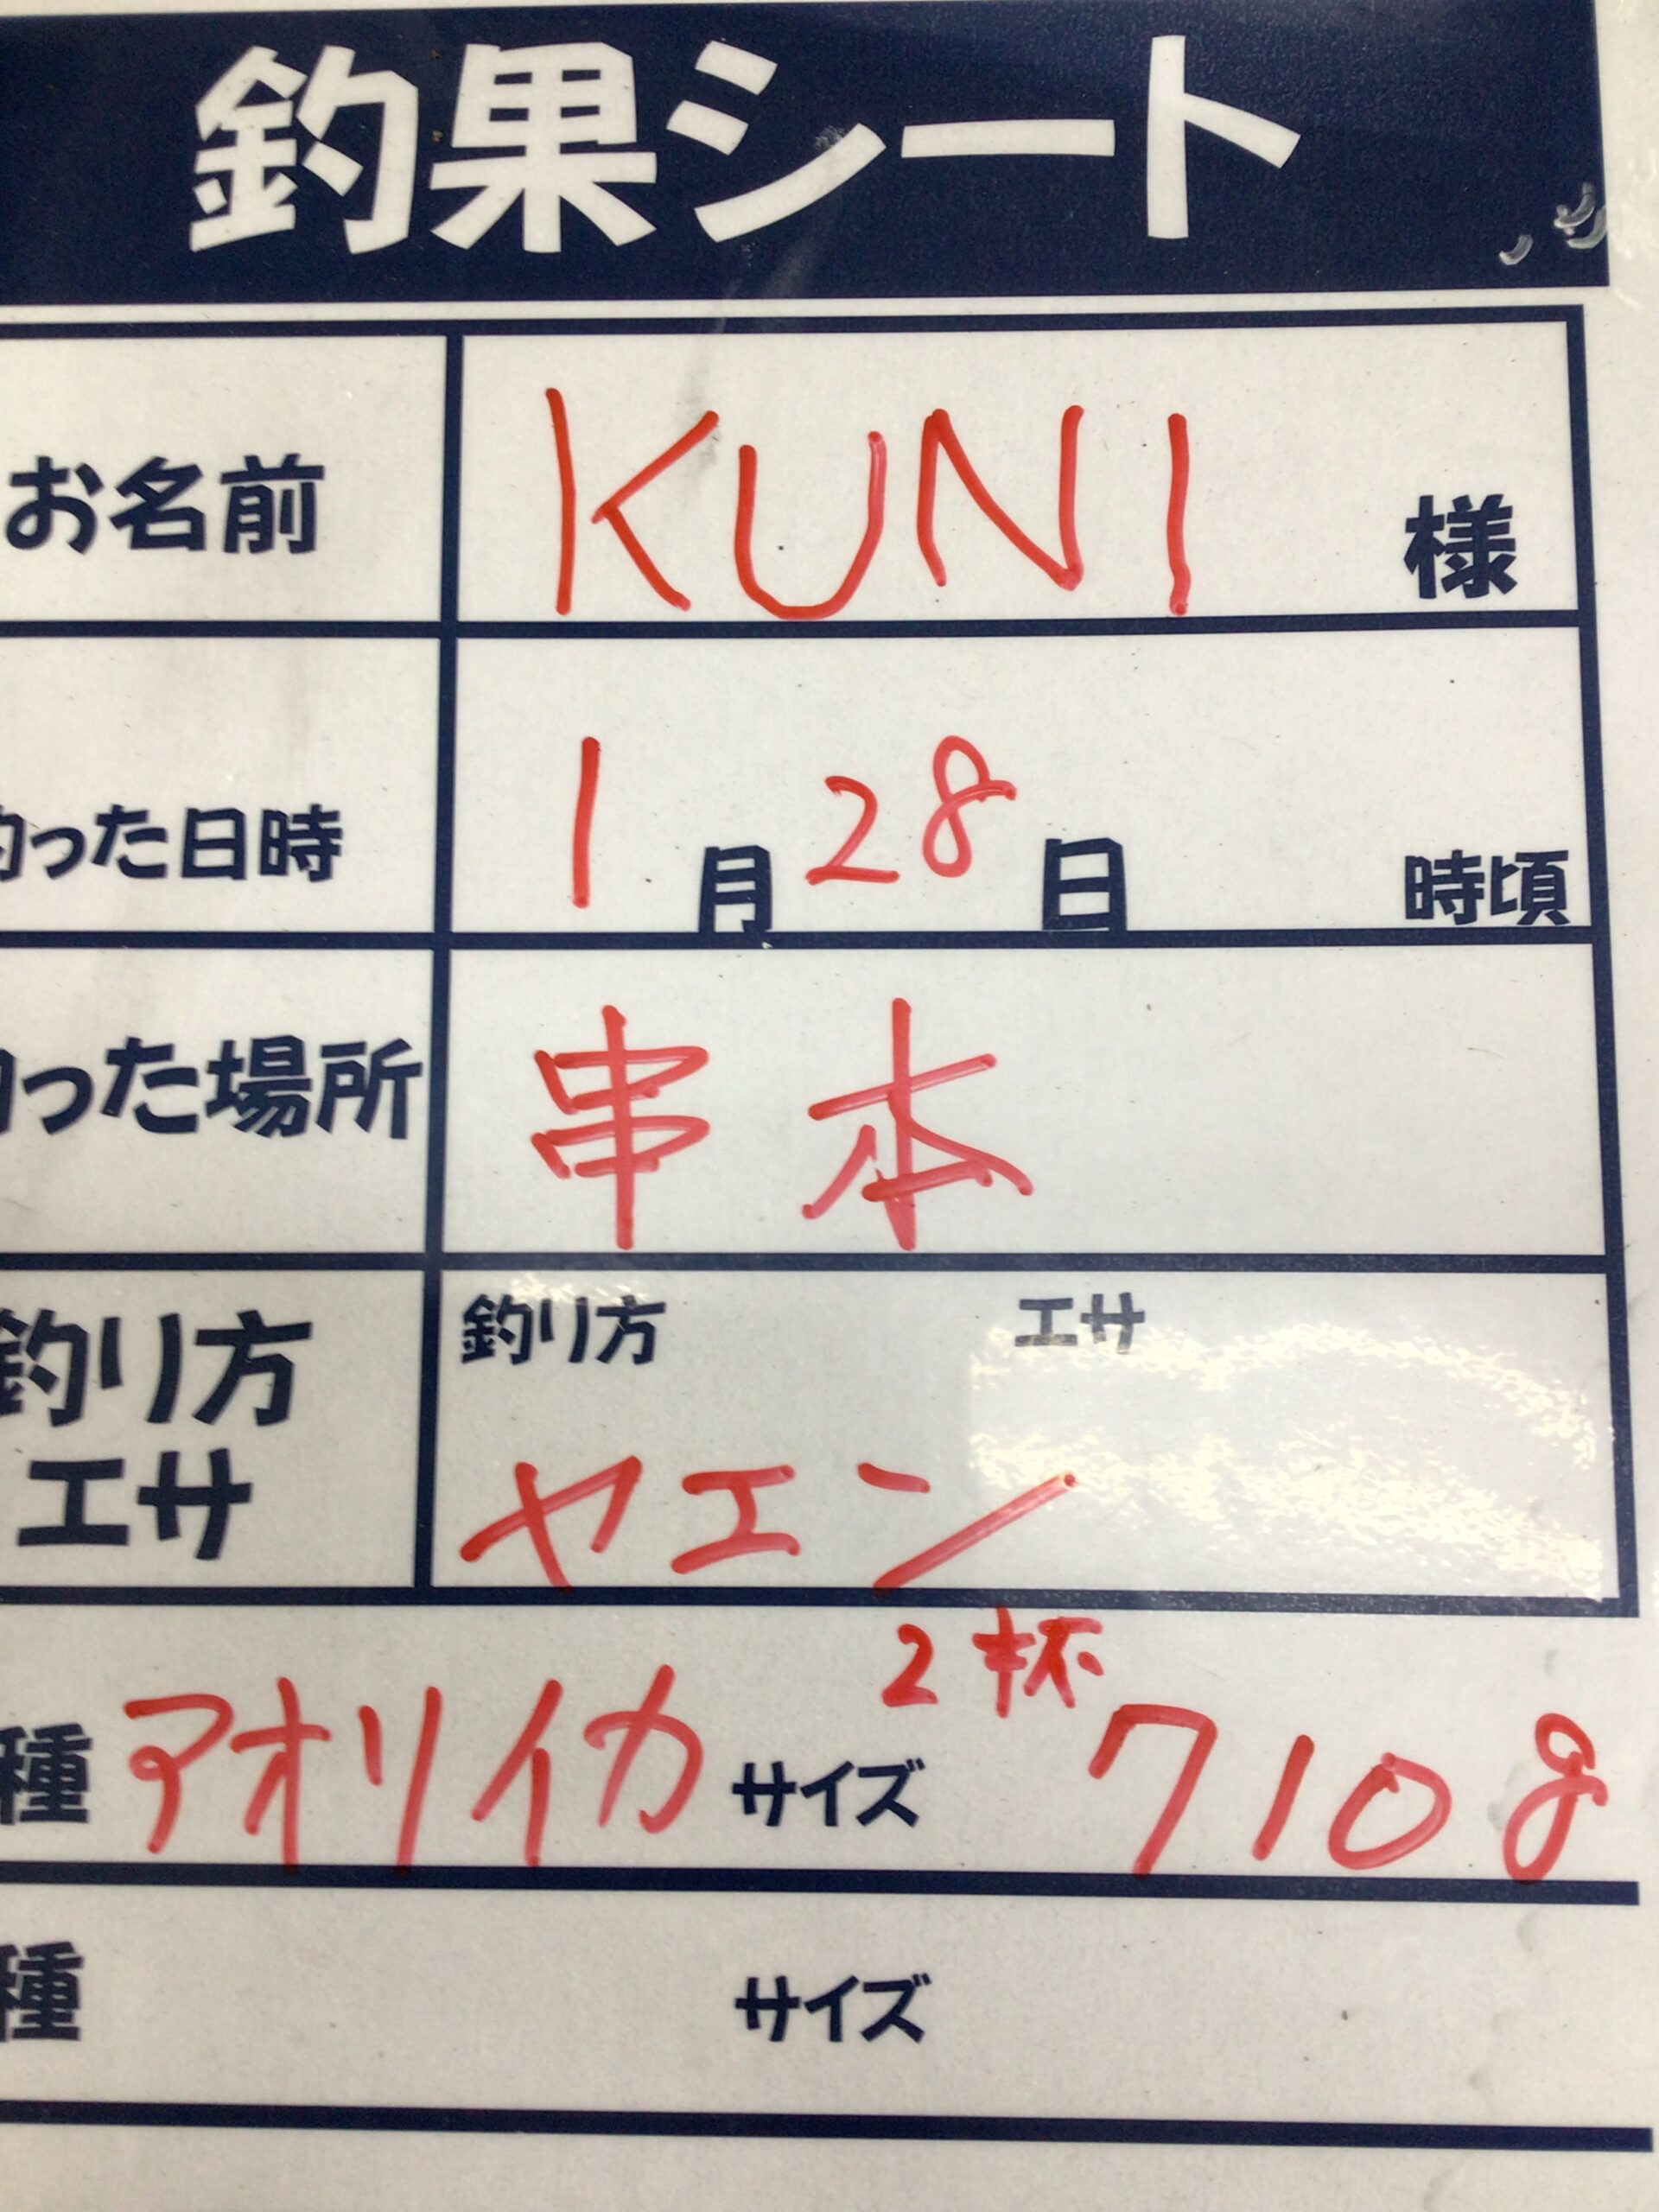 釣果シート
お名前 KUNI 様
釣った日時 1月28日 時頃
釣った場所 串本
釣り方 エサ 釣り方 エサ
ヤエン
2杯
種 アオリイカ サイズ 710g
種 サイズ